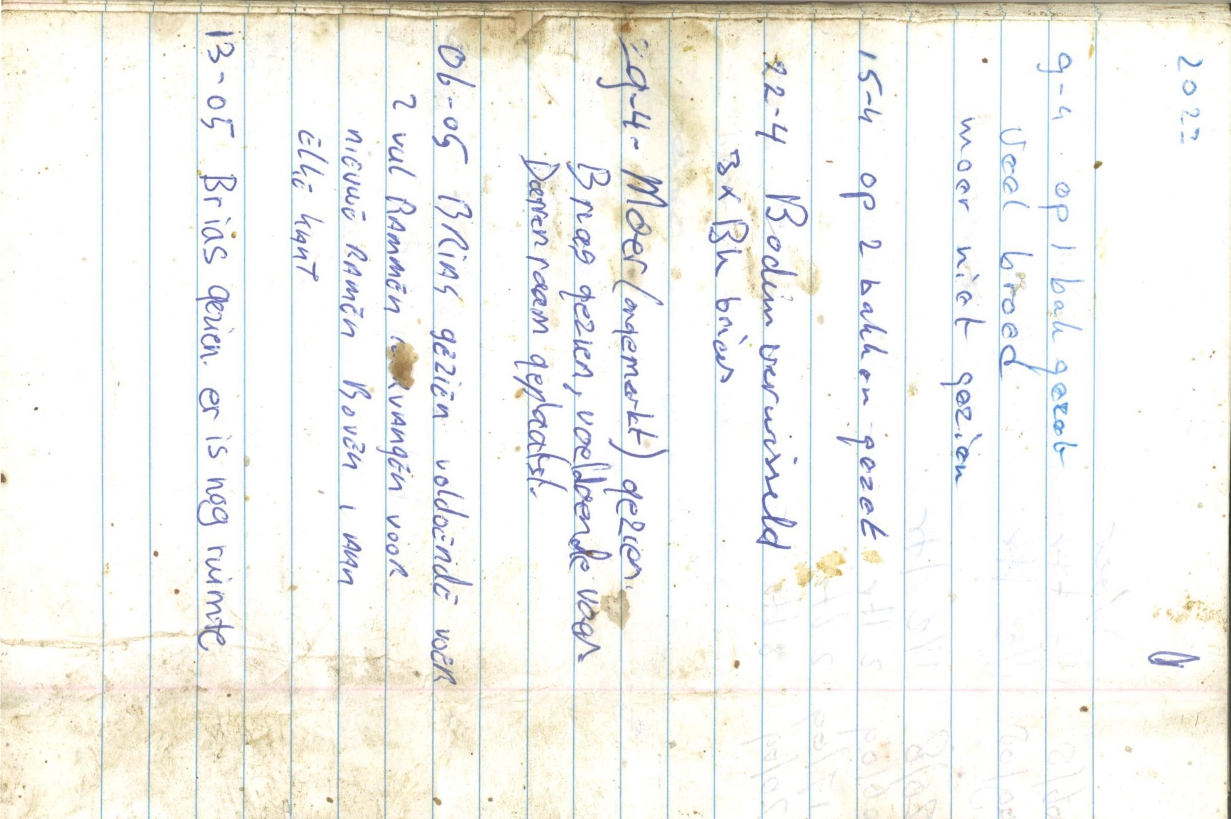 2022
9-4 op 1 bak gezet
veel broed
moer niet gezien
15-4 op 2 bakken gezet
22-4 Bodem verwisseld
3x BR brias
29-4- Moer (ongemerkt) gezien.
Brias gezien, voeldoende voer.
Darren raam geplaatst.
06-05 BRIAS gezien voldoende voer
2 vul RAMMEN vangen voor
nieuwe RAMEN Boven 1 aan
elke kant
13-05 Brias gezien. er is nog ruimte